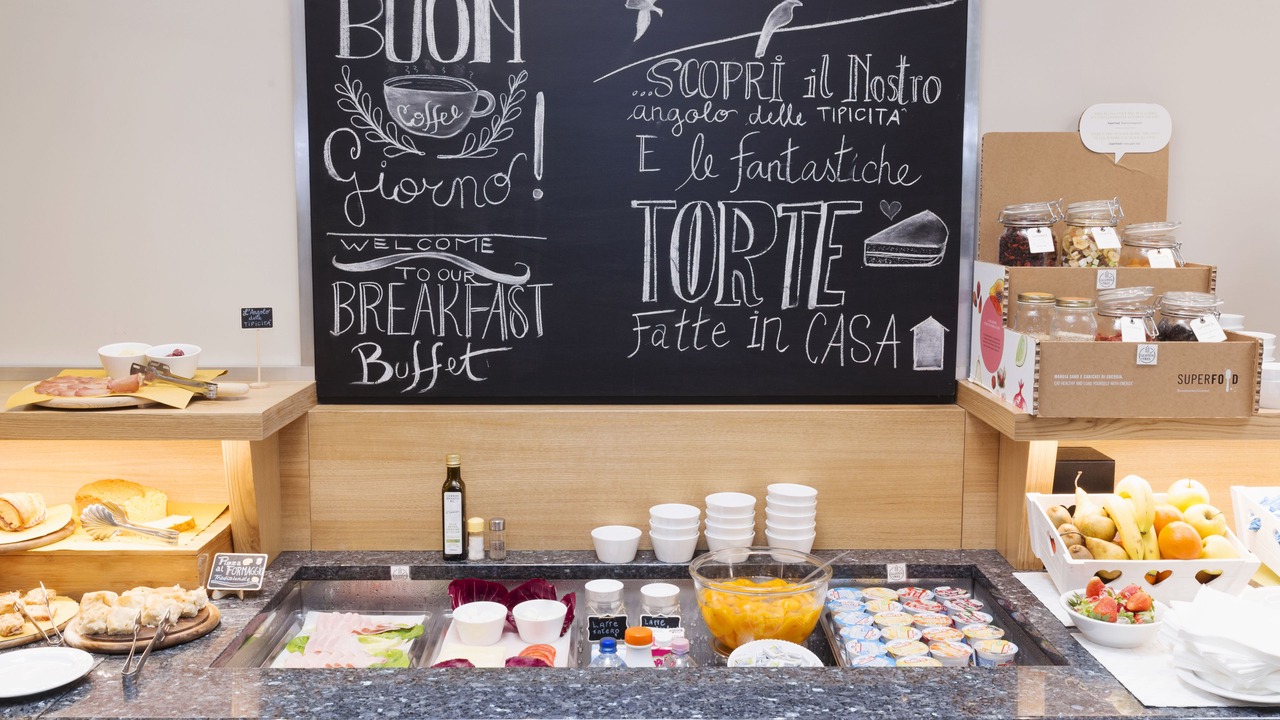 BUON
Coffee
Giorno!
WELCOME
TO OUR
BREAKFAST
Buffet
...SCOPRI il Nostro
angolo delle TIPICITA'
E le fantastiche
TORTE
Fatte in CASA
L'Angolo
delle
TIPICITA'
SUPERFOOD
Pizza
al FORMAGGIO
Tradizionale
Latte
intero
Latte